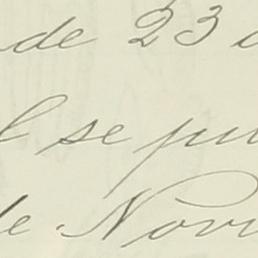 de 23
se pu
de Nov